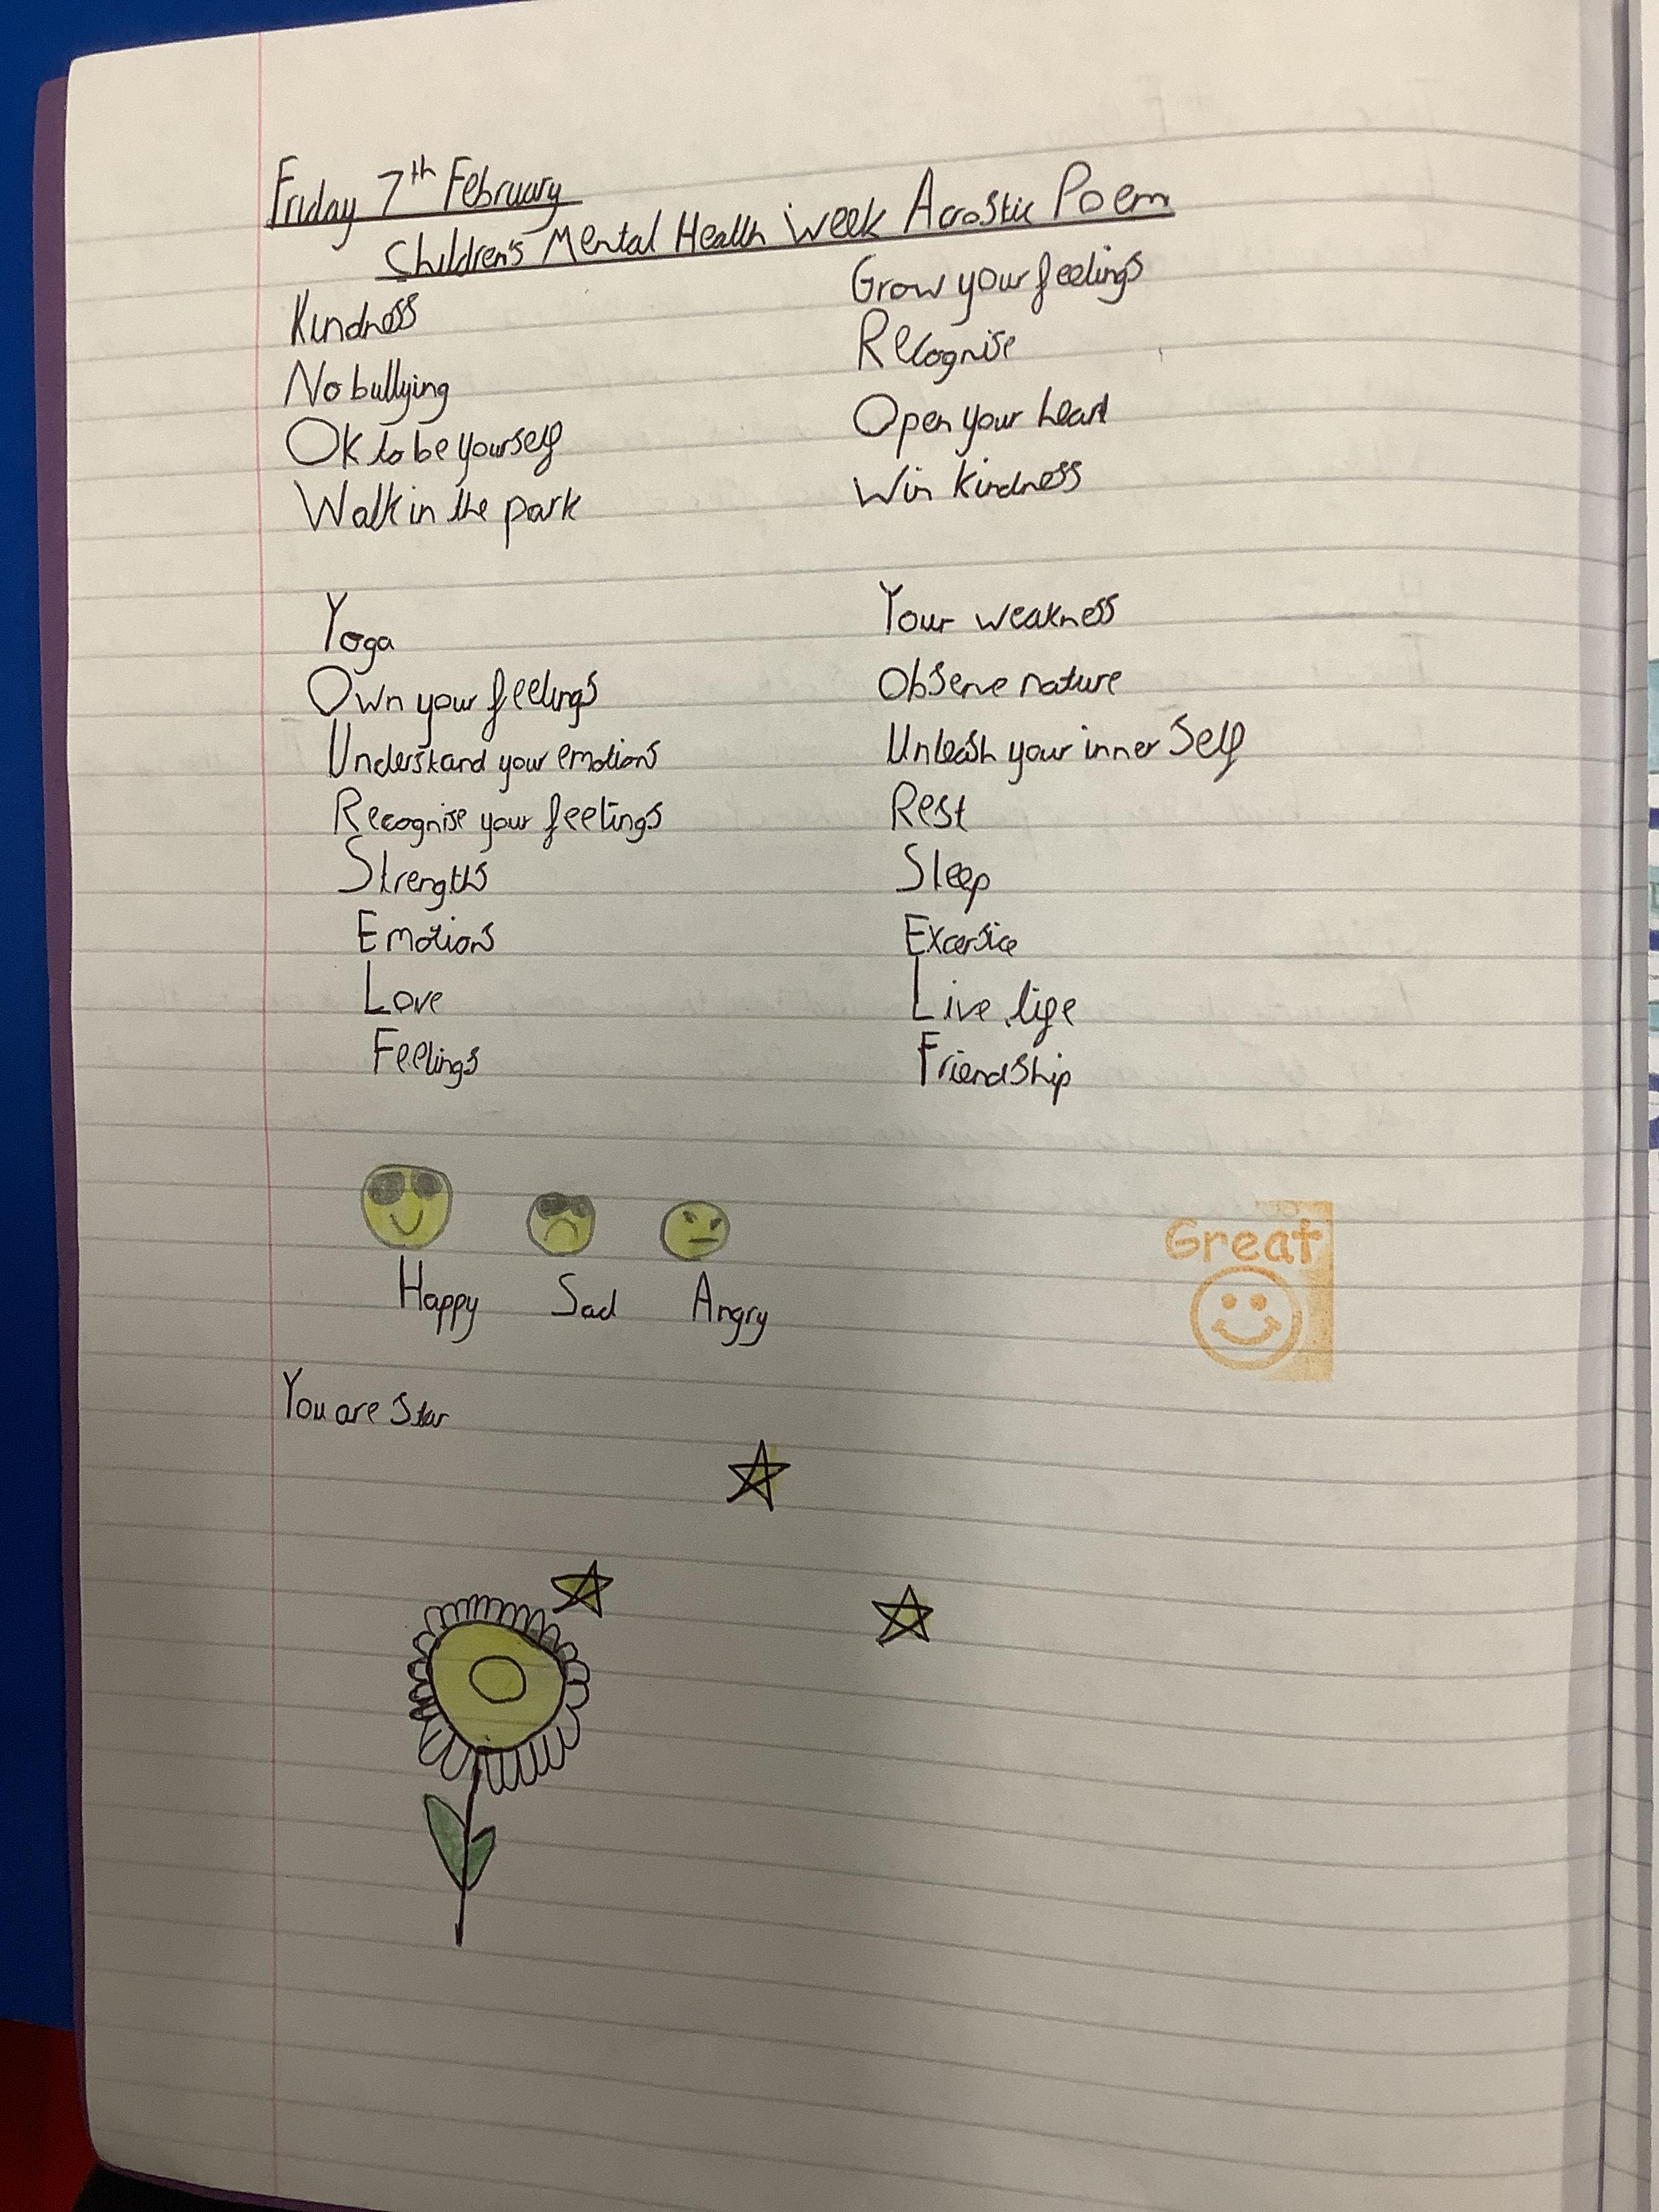 Friday 7th February
Children's Mental Health Week Acrostic Poem
Kindness
No bullying
Ok to be yourself
Walk in the park
Yoga
Own your feelings
Understand your emotions
Recognise your feelings
Strengths
Emotions
Love
Feelings
Grow your feelings
Recognise
Open your heart
Win kindness
Your weakness
Observe nature
Unleash your inner self
Rest
Sleep
Excersice
Live life
Friendship
Happy Sad Angry
Great
You are Star